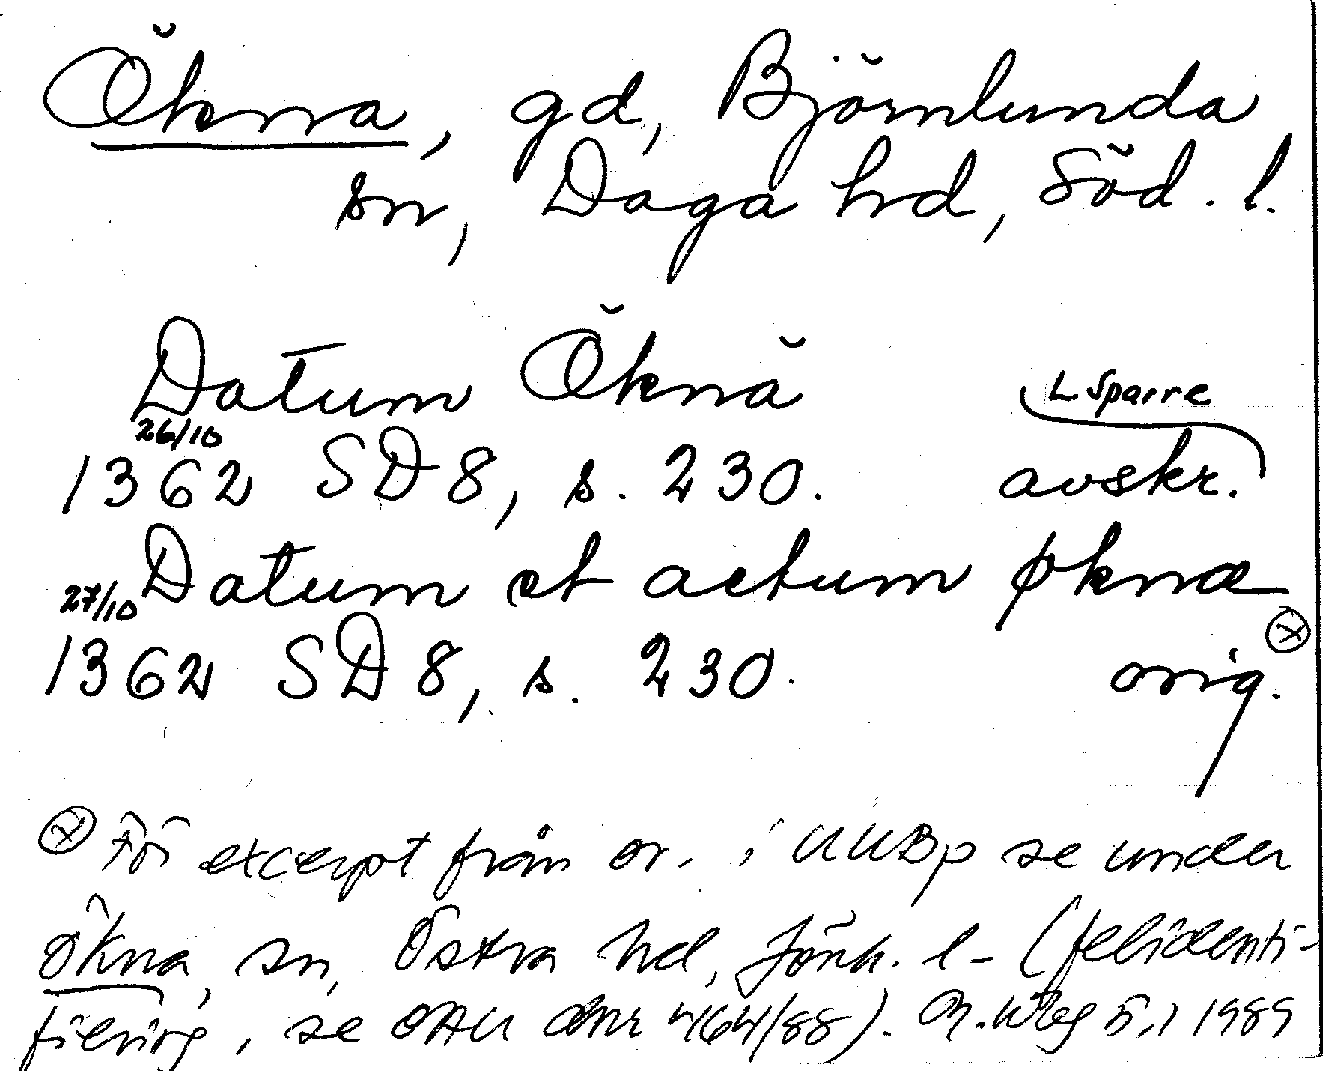 Ökna, gd, Björnlunda
sn, Daga hd, Söd. l.
Datum Öknä
L Sparre
26/10
1362 SD 8, s. 230. avskr.
Datum et actum Øknæ
27/10
1362 SD 8, s. 230. orig. ⊗
⊗ För excerpt från or. i UUBp se under
Ökna, sn, Östra hd, Jönk. l. (felidenti-
fiering, se OAU dnr 464/88). 5.1 1989